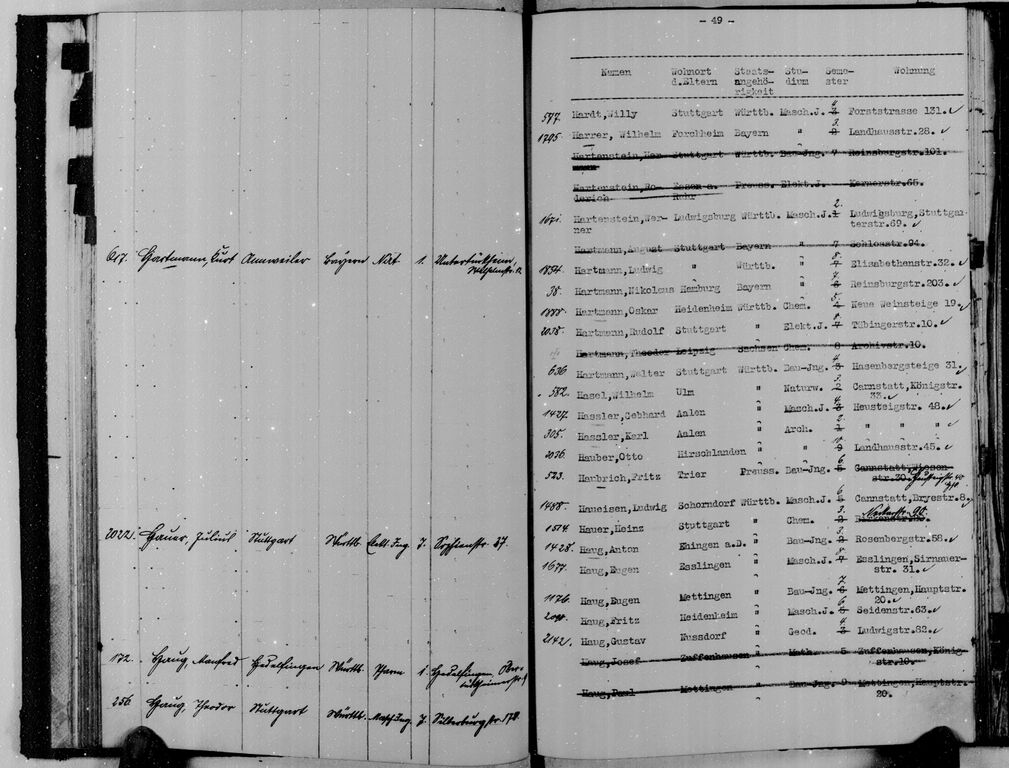 617. Hartmann, Kurt Annweiler Bayern Nat 1. Untertürkheim,
2022. Hauer, Julius Stuttgart Württb. Sophienstr. 37.
172. Haug, Manfred Hedelfingen Württb. Pharm 1. Hedelfingen,
256 Haug, Theodor Stuttgart Württb. Masch.Ing. Silberburgstr. 178.
- 49 -
Namen Wohnort Staats- Stu- Seme- Wohnung
d.Eltern angehö- dium ster
rigkeit
547. Hardt,Willy Stuttgart Württb. Masch.J. 4 3 Forststrasse 131.
1795. Harrer, Wilhelm Forchheim Bayern " 3. 2 Landhausstr.28.
Hartenstein,Her- Stuttgart Württb. Bau-Jng. 7 Reinsburgstr.101.
mann
Hartenstein,Ro- Essen a. Preuss. Elekt.J. Kernerstr.65.
derich Ruhr
1671. Hartenstein,Wer- Ludwigsburg Württb. Masch.J. 2. 1 Ludwigsburg,Stuttgar-
ner terstr.69.
Hartmann,August Stuttgart Bayern " 7 Schlosstr.94.
1854. Hartmann,Ludwig " Württb. " 8 7 Elisabethenstr.32.
38. Hartmann,Nikolaus Hamburg Bayern " 7 6 Reinsburgstr.203.
1888. Hartmann,Oskar Heidenheim Württb. Chem. 5 4 Neue Weinsteige 19.
2038. Hartmann,Rudolf Stuttgart " Elekt.J. 8 7 Tübingerstr.10.
Hartmann,Theodor Leipzig Sachsen Chem. 8 Archivstr.10.
636 Hartmann,Walter Stuttgart Württb. Bau-Jng. 4 3 Hasenbergsteige 31.
582. Hasel,Wilhelm Ulm " Naturw. 3. 2 Cannstatt,Königstr.
33.
1427. Hassler,Gebhard Aalen " Masch.J. 4 3 Heusteigstr. 48.
305. Hassler,Karl Aalen " Arch. 2. 1 " " "
2036 Hauber,Otto Hirschlanden " " 10 9 Landhausstr.45.
523. Haubrich,Fritz Trier Preuss. Bau-Jng. 6 5 Cannstatt,Wiesen-
str.20.
1488. Haueisen,Ludwig Schorndorf Württb. Masch.J. 6 5 Cannstatt,Bryestr.8.
1574. Hauer,Heinz Stuttgart " Chem. 3. 2 Neckarstr. 90.
1428. Haug,Anton Ehingen a.D. " Bau-Jng. 3 2 Rosenbergstr.58.
1677. Haug,Eugen Esslingen " Masch.J. 8 7 Esslingen,Sirnauer-
str. 31.
1176. Haug,Eugen Mettingen " Bau-Jng. 7 6 Mettingen,Hauptstr.
20.
Haug,Fritz Heidenheim " Masch.J. 6 5 Seidenstr.63.
2142. Haug,Gustav Nussdorf " Geod. 4 3 Ludwigstr.82.
Haug,Josef Zuffenhausen " Math. 5 Zuffenhausen,König-
str.10.
Haug,Paul Mettingen " Bau-Jng. 9 Mettingen,Hauptstr.
20.